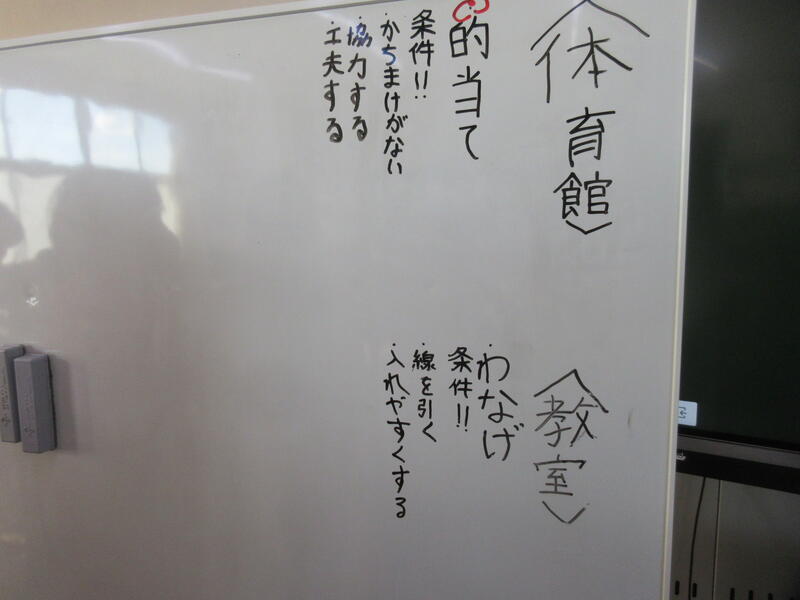 〈体育館〉
的当て
条件!!
・かちまけがない
・協力する
・工夫する
〈教室〉
・わなげ
条件!!
・線を引く
・入れやすくする